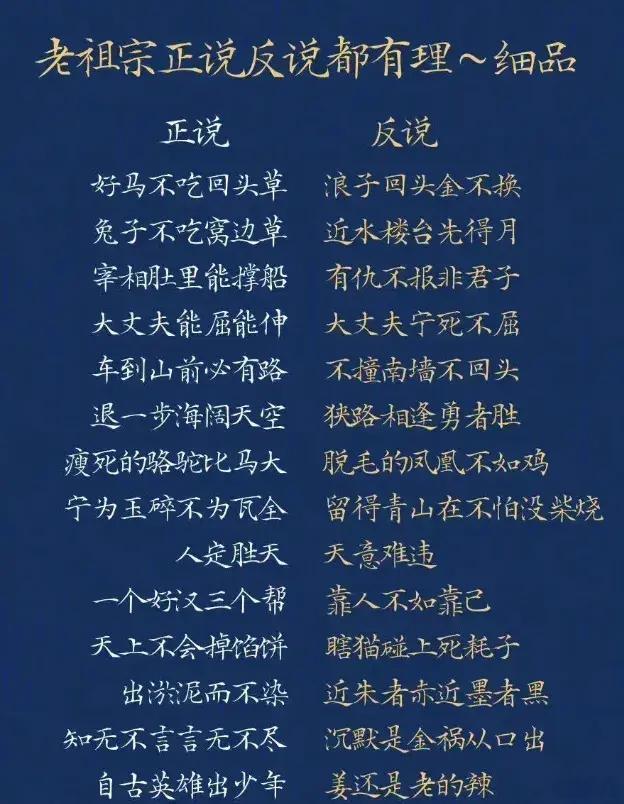 老祖宗正说反说都有理～细品
正说 反说
好马不吃回头草 浪子回头金不换
兔子不吃窝边草 近水楼台先得月
宰相肚里能撑船 有仇不报非君子
大丈夫能屈能伸 大丈夫宁死不屈
车到山前必有路 不撞南墙不回头
退一步海阔天空 狭路相逢勇者胜
瘦死的骆驼比马大 脱毛的凤凰不如鸡
宁为玉碎不为瓦全 留得青山在不怕没柴烧
人定胜天 天意难违
一个好汉三个帮 靠人不如靠己
天上不会掉馅饼 瞎猫碰上死耗子
出淤泥而不染 近朱者赤近墨者黑
知无不言言无不尽 沉默是金祸从口出
自古英雄出少年 姜还是老的辣